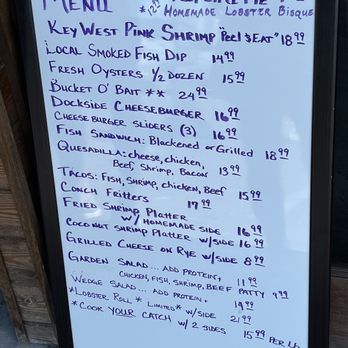 MENU
*12 99 HOMEMADE LOBSTER BISQUE
KEY WEST PINK SHRIMP PEEL & EAT" 18 99
LOCAL SMOKED FISH DIP 14 99
FRESH OYSTERS 1/2 DOZEN 15 99
BUCKET O' BAIT ** 24 99
DOCKSIDE CHEESEBURGER 16 99
CHEESEBURGER SLIDERS (3) 16 99
FISH SANDWICH: BLACKENED OR GRILLED 18 99
QUESADILLA: CHEESE, CHICKEN,
BEEF, SHRIMP, BACON 13 99
TACOS: FISH, SHRIMP, CHICKEN, BEEF 15 99
CONCH FRITTERS 17 99
FRIED SHRIMP PLATTER
W/HOMEMADE SIDE 16 99
COCONUT SHRIMP PLATTER W/SIDE 16 99
GRILLED CHEESE ON RYE W/SIDE 8 99
GARDEN SALAD... ADD PROTEIN, 11 99
CHICKEN, FISH, SHRIMP, BEEF PATTY 9 99
WEDGE SALAD... ADD PROTEIN, 14 99
*LOBSTER ROLL* LIMITED* W/SIDE 21 99
*COOK YOUR CATCH W/2 SIDES 15 99 PER LB